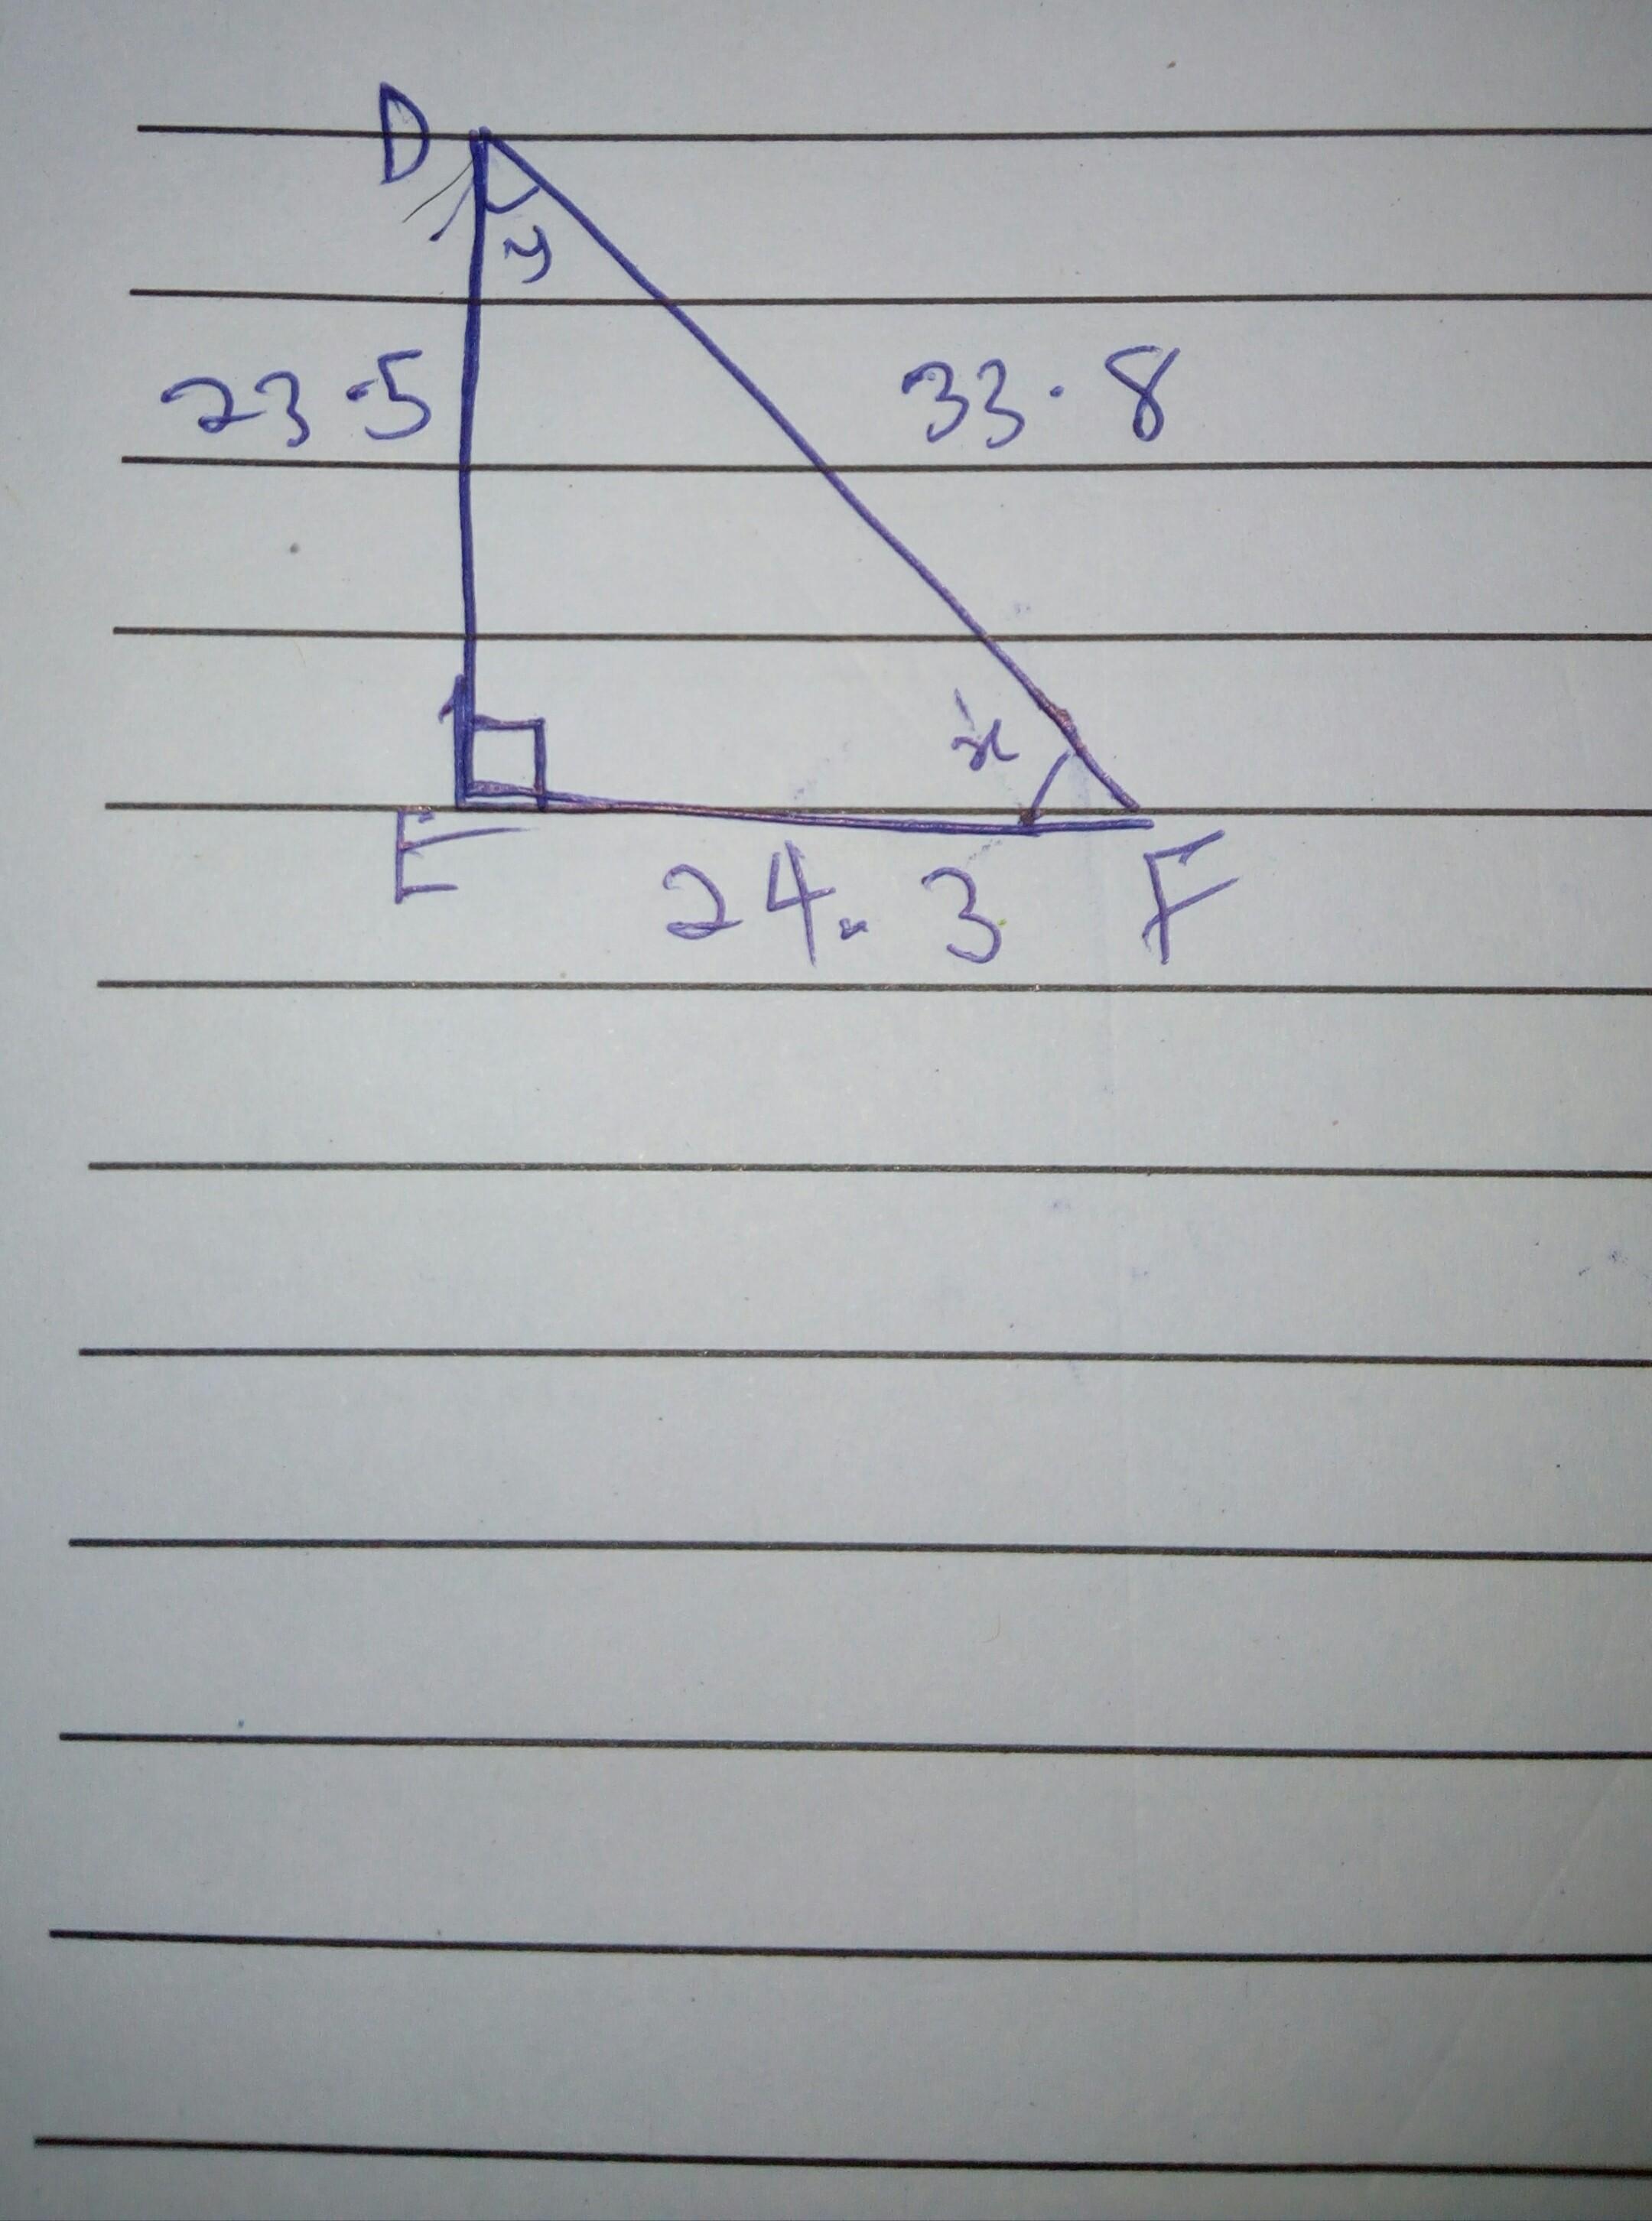 D
y
23.5
33.8
x
E
24.3
F